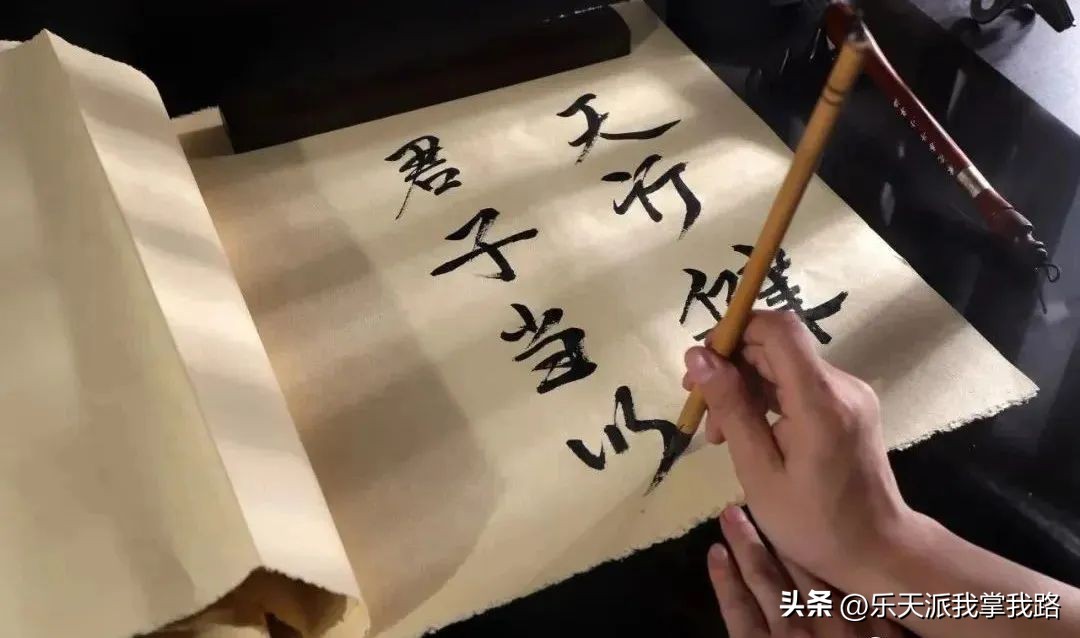 天行健
君子当以
头条 @乐天派我掌我路